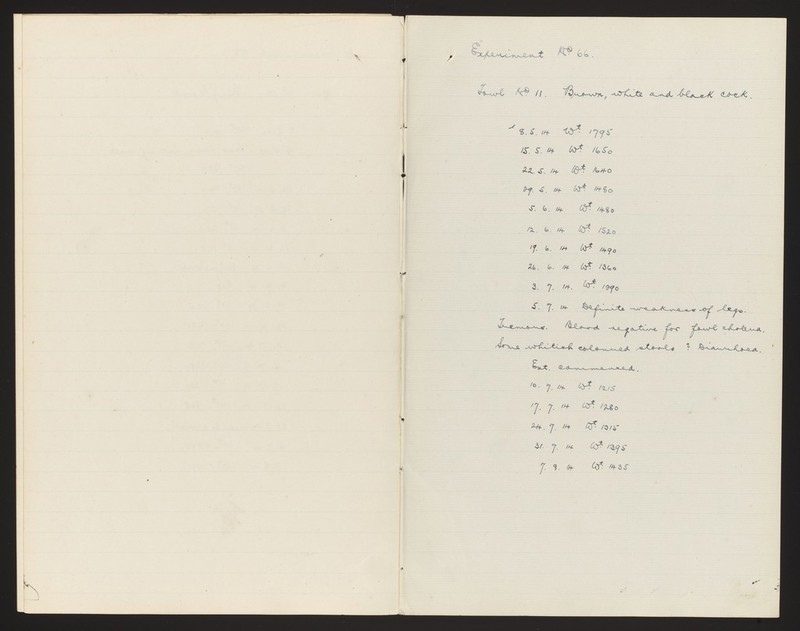 Experiment No 66.
Fowl No 11. Brown, white and black cock.
8. 5. 14 Wt 1795
15. 5. 14 Wt 1650
22. 5. 14 Wt 1640
29. 5. 14 Wt 1480
5. 6. 14 Wt 1480
12. 6. 14 Wt 1520
19. 6. 14 Wt 1490
26. 6. 14 Wt 1360
3. 7. 14. Wt 1390
5. 7. 14 Definite weakness of legs.
Tremors. Blood negative for fowl cholera.
Some whitish coloured stools ? Diarrhoea.
Ext. commenced.
10. 7. 14 Wt 1215
17. 7. 14 Wt 1280
24. 7. 14 Wt 1315
31. 7. 14 Wt 1395
7 8. 14 Wt 1435